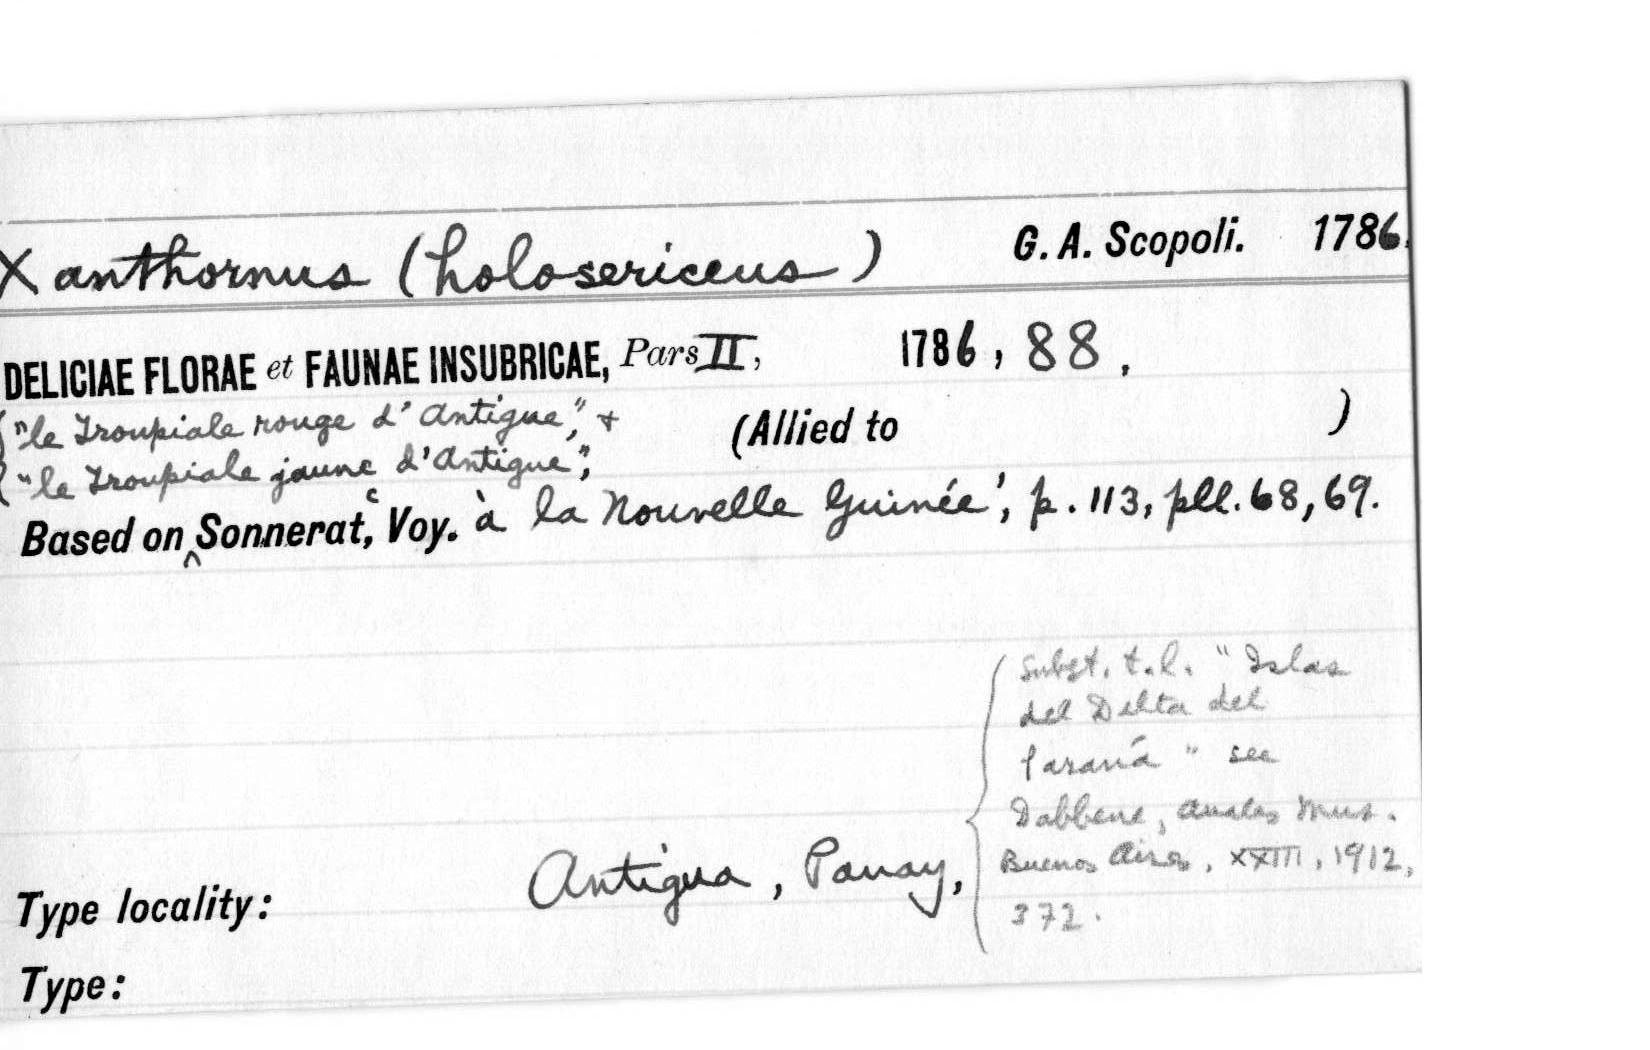 Xanthornus (holosericeus) G. A. Scopoli. 1786.
DELICIAE FLORAE et FAUNAE INSUBRICAE, Pars II, 1786, 88.
"le Troupiale rouge d'Antigue", + (Allied to )
"le Troupiale jaune d'Antigue",
Based on ^ Sonnerat, Voy. à la Nouvelle Guinée', p. 113, pll. 68, 69.
Subst. t.l. "Islas
del Delta del
Paraná" see
Dabbene, Anales Mus.
Buenos Aires, XXIII, 1912,
372.
Type locality: Antigua, Panay,
Type: